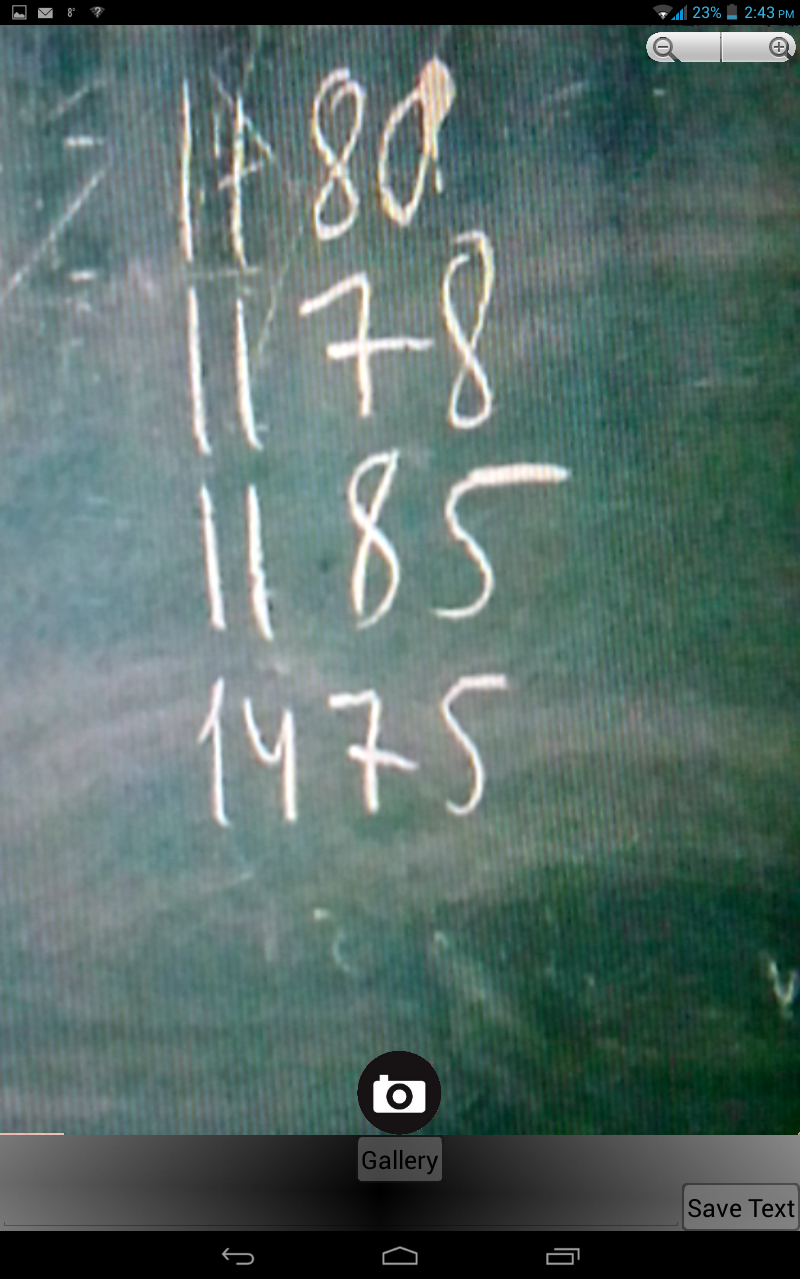 8° 23% 2:43 PM
1180
1178
1185
1475
Gallery
Save Text